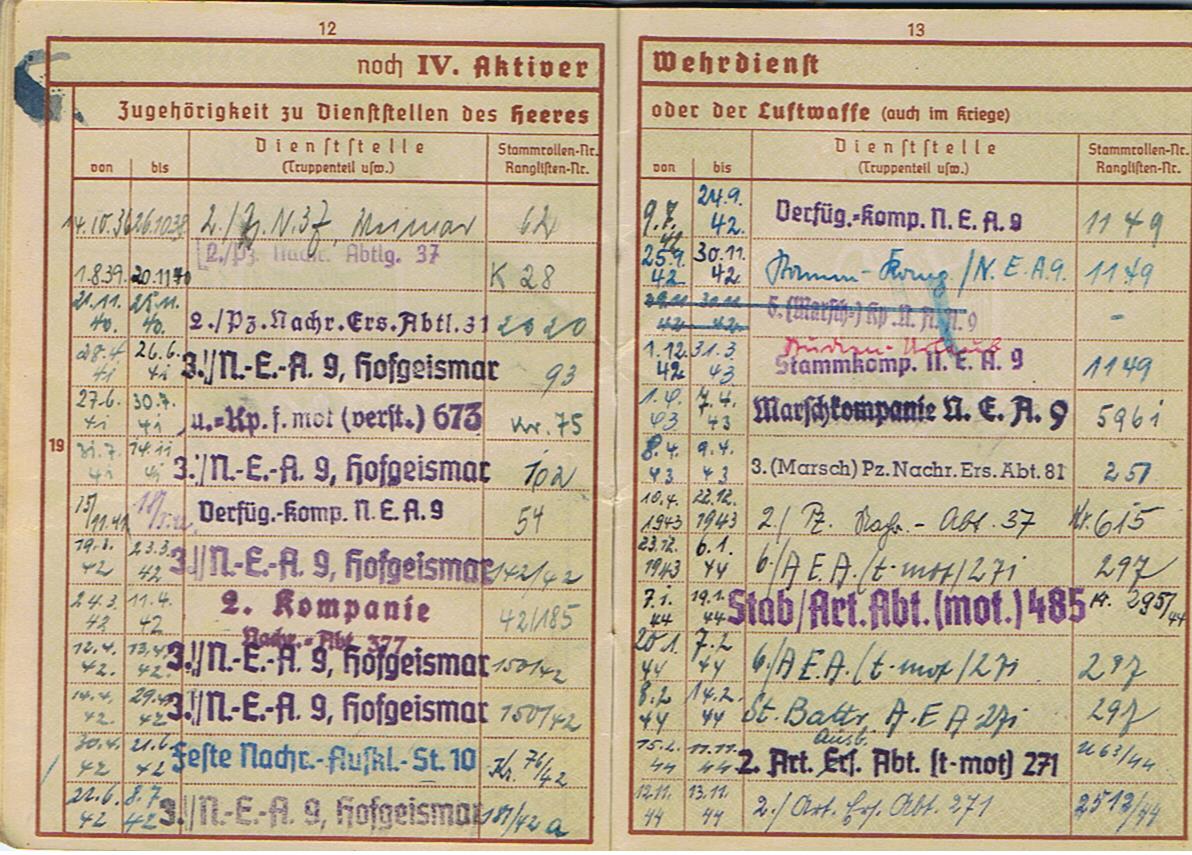 12
noch IV. Aktiver
Zugehörigkeit zu Dienststellen des Heeres
von bis Dienststelle (Truppenteil usw.) Stammrollen-Nr. Ranglisten-Nr.
19
14.10.36 26.10.38 2./ N. 37, 62
2./Pz. Nachr. Abtlg. 37
1.8.39. 20.11.40 K 28
21.11. 40. 25.11. 40. 2./Pz.Nachr.Ers.Abtl.31 2020
28.4. 41 26.6. 41 3./N.-E.-A. 9, Hofgeismar 93
27.6. 41 30.7. 41 u.=Kp. f. mot (verst.) 673 Kr. 75
31.7. 41 14.11 41 3./N.-E.-A. 9, Hofgeismar 102
15/ 11.41 Verfüg.-Komp. N.E.A.9 54
42 23.3. 42 3./N.-E.-A. 9, Hofgeismar 142/42
24.3. 42 11.4. 42 2. Kompanie 42/185
Nachr.-Abt. 377
12.4. 42. 13.4. 42. 3./N.-E.-A. 9, Hofgeismar 150/42
14.4. 42. 29.4. 42 3./N.-E.-A. 9, Hofgeismar 150/42
30.4. 42 21.6. 42 Feste Nachr.-Aufkl.-St. 10 Kr. 76/42
22.6. 42 8.7. 42 3./N.-E.-A. 9, Hofgeismar 181/42 a
13
Wehrdienst
oder der Luftwaffe (auch im Kriege)
von bis Dienststelle (Truppenteil usw.) Stammrollen-Nr. Ranglisten-Nr.
9.7. 42 24.9. 42. Verfüg.=Komp. N. E. A. 9 1149
25.9. 42 30.11. 42. Stamm-Komp./N.E.A.9. 1149
42 42 5. (Marsch=) Kp. N. A. 9 -
Studien-Urlaub
1.12. 42 31.3. 43 Stammkomp. N. E. A. 9 1149
1.4. 43 7.4. 43 Marschkompanie N. E. A. 9 5961
8.4. 43 9.4. 43 3. (Marsch) Pz. Nachr. Ers. Abt. 81 251
10.4. 1943 22.12. 1943 2./ Pz. Nachr.- Abt. 37 Kr. 615
23.12. 1943 6.1. 44 6/A.E.A. (t-mot) 271 297
7.1. 44 19.1. 44 Stab/Art.Abt.(mot.) 485 295/44
20.1. 44 7.2 44 6./A.E.A. (t-mot) 271 297
8.2. 44 14.2. 44 St. Battr. A.E.A 271 297
Ausb.
15.2. 44 11.11. 44 2. Art. Ers. Abt. (t-mot) 271 63/44
12.11. 44 13.11. 44 2./ Art. Ers. Abt. 271 2512/44